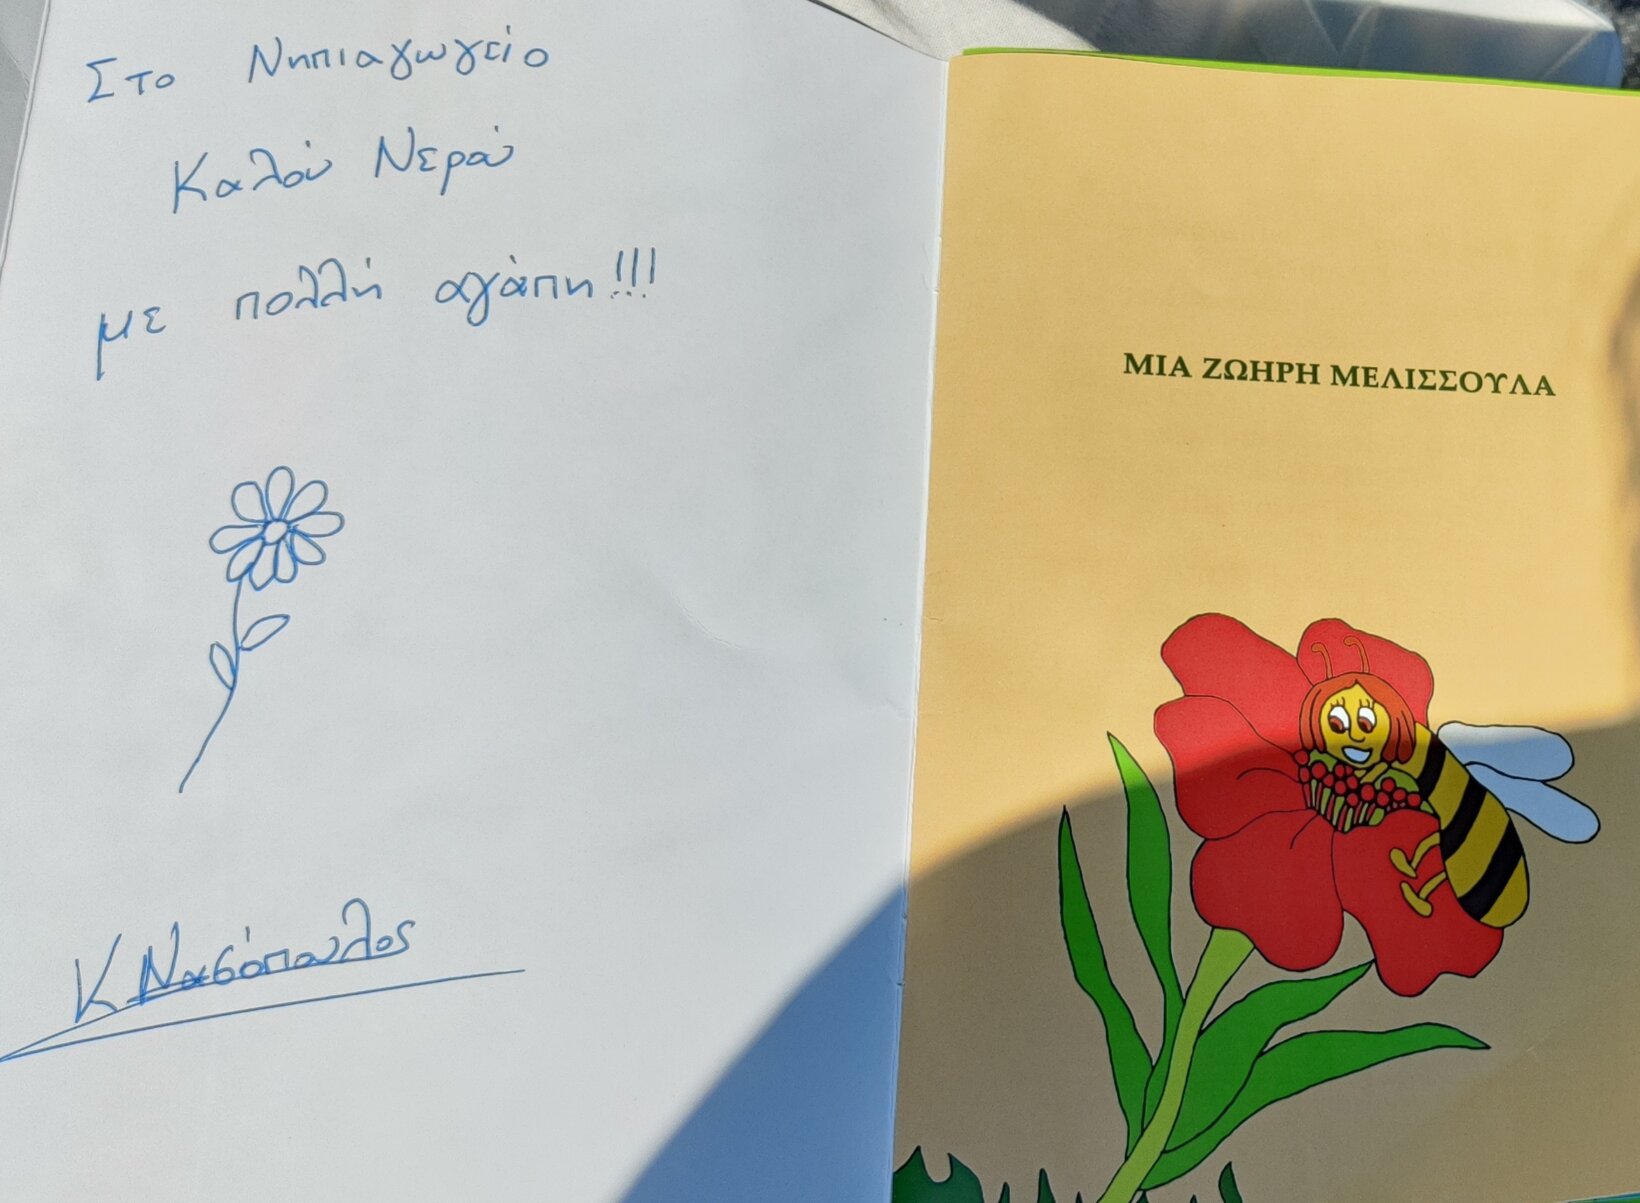 Στο Νηπιαγωγείο
Καλού Νερού
με πολλή αγάπη!!!
Κ Νασόπουλος
ΜΙΑ ΖΩΗΡΗ ΜΕΛΙΣΣΟΥΛΑ